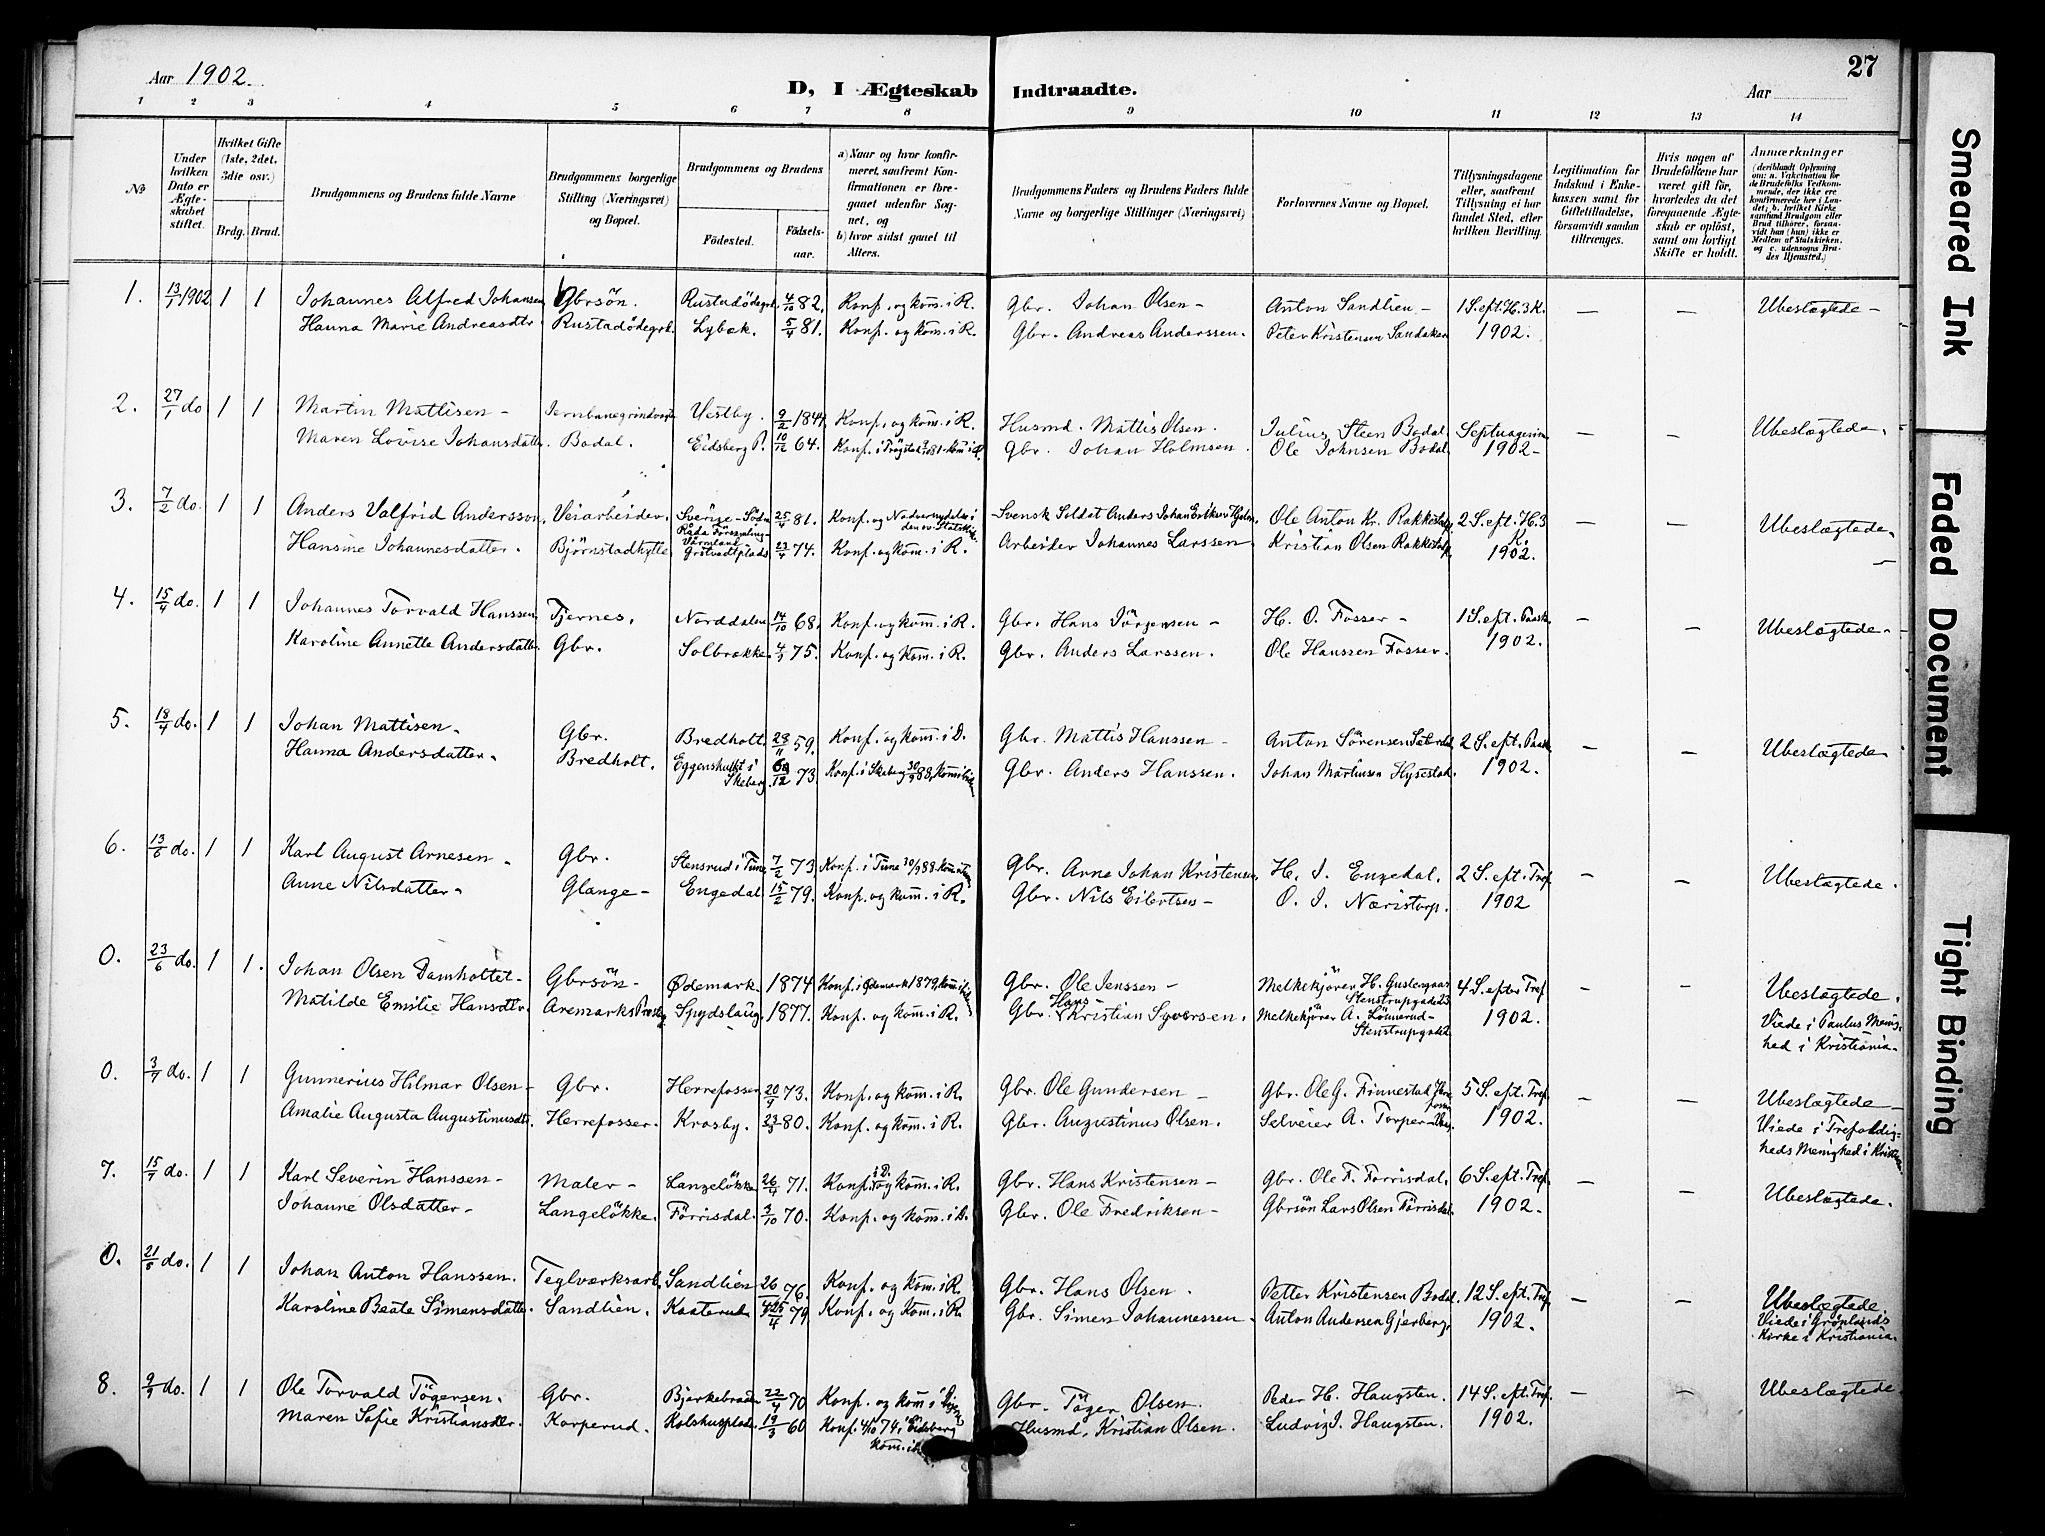 27
Aar 1902.
D, I Ægteskab Indtraadte.
Aar
1 2 3 4 5 6 7 8 9 10 11 12 13 14
No
Under hvilken Dato er Ægteskabet stiftet.
Hvilket Gifte (1ste, 2det, 3die osv.)
Brdg. Brud.
Brudgommens og Brudens fulde Navne
Brudgommens borgerlige Stilling (Næringsvei) og Bopæl.
Brudgommens og Brudens
Födested. Födselsaar.
a) Naar og hvor konfirmeret, saafremt Konfirmationen er foregaaet udenfor Sognet, og
b) hvor sidst gaaet til Alters.
Brudgommens Faders og Brudens Faders fulde Navne og borgerlige Stillinger (Næringsvei)
Forlovernes Navne og Bopæl.
Tillysningsdagene eller, saafremt Tillysning ei har fundet Sted, efter hvilken Bevilling.
Legitimation for Indskud i Enkekassen samt for Giftetilladelse, forsaavidt saadan tiltrænges.
Hvis nogen af Brudefolkene har været gift för, hvorledes da det foregaaende Ægteskab er oplöst, samt om lovligt Skifte er holdt.
Anmærkninger (deriblandt Oplysning om: a. Vakcination for de Brudefolks Vedkommende, der ikke ere konfirmerede her i Landet; b. hvilket Kirkesamfund Brudgom eller Brud tilhörer, forsaavidt han (hun) ikke er Medlem af Statskirken, og c. udensogns Brudes Hjemsted.)
1. 13/1 1902 1 1 Johannes Alfred Johansen Gbrsön. Rustadödegrd. 4/10 82. Konf. og kom. i R. Gbr. Johan Olsen - Anton Sandlien - 1 S. eft. H. 3 K. — — Ubeslægtede -
Hanna Marie Andreasdtr. Rustadödegrd. Lybæk. 5/4 81. Konf. og kom. i R. Gbr. Andreas Anderssen. Peter Kristensen Sandaker 1902.
2. 27/1 do 1 1 Martin Mattisen - Jernbanegrindvogter Vestby. 9/2 1841. Konf. og kom. i R. Husmd. Mattis Olsen. Julius Steen Bodal. Septuagesima — — Ubeslægtede.
Maren Lovise Johansdatter. Bodal. Eidsberg P. 10/12 64. Konf. i Trögstad 81 - kom i R. Gbr. Johan Holmsen. Ole Johnsen Bodal. 1902 -
3. 7/2 do. 1 1 Anders Valfrid Andersson. Veiarbeider. Sverige - Södra Råda Församling - Värmland - 25/4 81. Konf. og Nadvernydelse i den sv. Statskirke. Svensk Soldat Anders Johan Eriksen Hjelm. Ole Anton Kr. Rakkestad 2 S. eft. H. 3 K. — — Ubeslægtede.
Hansine Johannesdatter. Björnstadhytte Grötvedtplads 23/4 74. Konf. og kom. i R. Arbeider Johannes Larssen. Kristian Olsen Rakkestad 1902.
4. 15/4 do. 1 1 Johannes Torvald Hanssen Tjernes. Norddalen 14/10 68. Konf. og kom. i R. Gbr. Hans Jörgensen - H. O. Fosser - 1 S. eft. Paask. — — Ubeslægtede -
Karoline Annette Andersdatter. Gbr. Solbrække 4/1 75. Konf. og kom. i R. Gbr. Anders Larssen. Ole Hanssen Fosser. 1902.
5. 18/4 do. 1 1 Johan Mattisen. Gbr. Bredholt. 28/11 59. Konf. og kom. i D. Gbr. Mattis Hanssen - Anton Sörensen 2 S. eft. Paask. — — Ubeslægtede
Hanna Andersdatter. Bredholt. Eggenshullet i Skeberg. 12 73 Konf. i Skeberg 30/9 88, Gbr. Anders Hanssen. Johan Martinsen Hysestad. 1902.
6. 13/6 do. 1 1 Karl August Arnesen - Gbr. Stensrud i Tune 7/2 73 Konf. i Tune 30/9 88. Gbr. Arne Johan Kristensen. H. J. Engedal. 2 S. eft. Tref. — — Ubeslægtede.
Anne Nilsdatter - Glange - Engedal 15/2 79. Konf. og kom. i R. Gbr. Nils Eilertsen - O. J. Næristorp. 1902
0. 23/6 do. 1 1. Johan Olsen Damholtet - Gbrsön - Ödemark. 1874 Konf. i Ödemark 1879, Gbr. Ole Jenssen - Melkekjörer H. Gustergaar Stenstrupgade 23 4 S. efter Tref. — — Ubeslægtede.
Matilde Emilie Hansdtr. Aremarks Prestg. Spydslaug. 1877. Konf. og kom. i R. Gbr. Hans Kristian Syversen. Melkekjörer A. Lönnerud - Stenstrupgade 1902. Viede i Paulus Menighed i Kristiania.
0. 3/7 do. 1 1 Gunnerius Hilmar Olsen - Gbr. Herrefosser 20/9 73. Konf. og kom. i R. Gbr. Ole Gundersen - Gbr. Ole G. Finnestad 5 S. eft. Tref. — — Ubeslægtede -
Amalie Augusta Augustinusdtr. Herrefosser. Krosby. 23/3 80. Konf. og kom. i R. Gbr. Augustinus Olsen. Selveier A. Torper 1902. Viede i Trefoldigheds Menighed i Kristiania
7. 15/7 do. 1 1 Karl Severin Hanssen - Maler - Langelökke 26/4 71. Konf. i D. og kom. i R. Gbr. Hans Kristensen - Gbr. Ole F. Förrisdal. 6 S. eft. Tref. — — Ubeslægtede.
Johanne Olsdatter - Langelökke. Förrisdal. 3/10 70. Konf. og kom. i D. Gbr. Ole Fredriksen - Gbrsön Lars Olsen Förrisdal. 1902.
0. 21/8 do. 1 1 Johan Anton Hanssen. Teglværksarb. Sandlien 26 76. Konf. og kom. i R. Gbr. Hans Olsen. Petter Kristensen Bodal. 12 S. eft. Tref. — — Ubeslægtede.
Karoline Beate Simensdatter. Sandlien. Kaaterud 25/4 79 Konf. og kom. i R. Gbr. Simen Johannessen. Anton Andersen Gjerberg. 1902. Viede i Grönlands Kirke i Kristiania.
8. 9/9 do. 1 1 Ole Torvald Tögersen. Gbr. Bjerkebraaten 22/4 70 Konf. og kom i Gbr. Töger Olsen. Peder H. Haugsten. 14 S. eft. Tref. — — Ubeslægtede
Maren Sofie Kristiansdtr. Korperud. Kolshusplads 19/3 60 Konf. 4/10 74, i Eidsberg kom. i Husmd. Kristian Olsen. Ludvig J. Haugsten. 1902.
Smeared Ink
Faded Document
Tight Binding